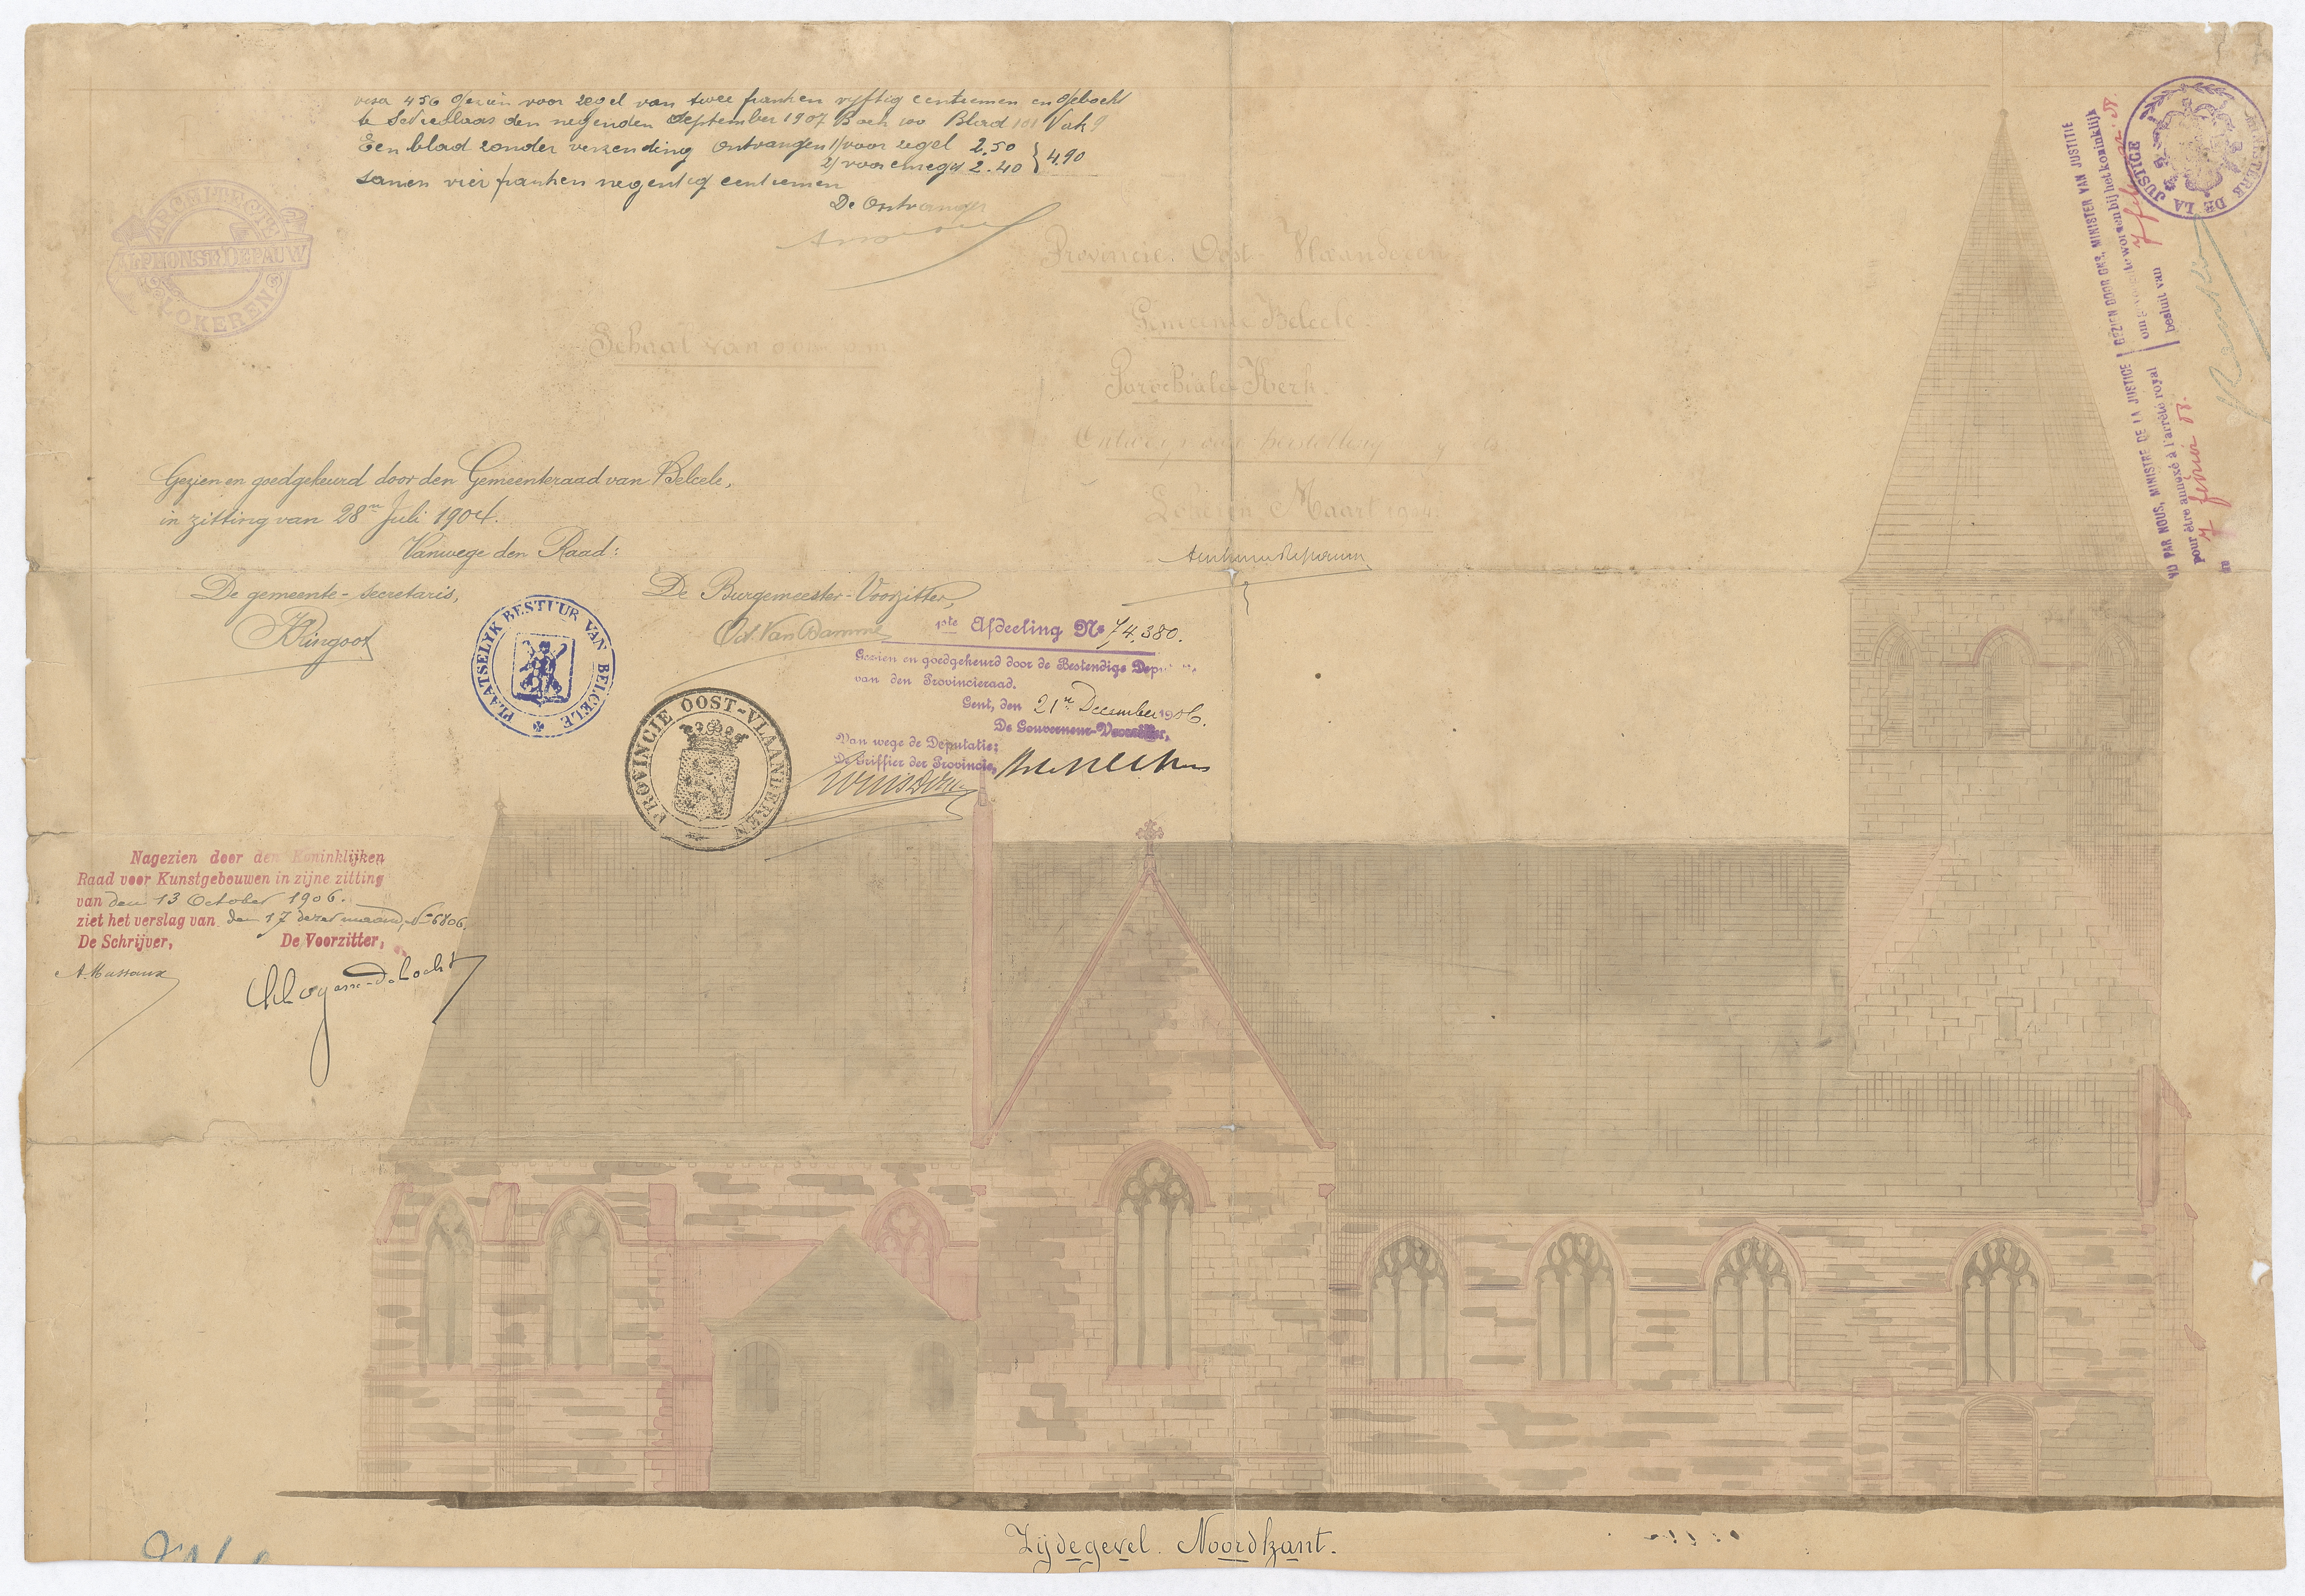 voor zegel van twee franken vyftig centiemen en geboekt
den negenden September 1907 Boek 100 Blad 101 Vak 9
Een blad zonder verzending ontvangen 1/ voor zegel 2.50
2/ voor 2.40 } 4.90
samen vier franken negentig centiemen
De Ontvanger
ARCHITECTE
ALPHONSE DEPAUW
LOKEREN
Schaal van
Provincie Oost Vlaanderen
Gemeente Belcele.
Parochiale Kerk.
Ontwerp voor herstelling
Lokeren Maart 1904
Gezien en goedgekeurd door den Gemeenteraad van Belcele,
in zitting van 28n Juli 1904.
Vanwege den Raad:
De gemeente-secretaris,
De Burgemeester-Voorzitter,
Od. Van Damme
PLAATSELYK BESTUUR VAN BELCELE
1ste Afdeeling No 74,380.
Gezien en goedgekeurd door de Bestendige
van den Provincieraad.
Gent, den 21n December 1906.
De Gouverneur-Voorzitter,
Van wege de Deputatie:
De Griffier der Provincie,
PROVINCIE OOST-VLAANDEREN
Nagezien door den Koninklijken
Raad voor Kunstgebouwen in zijne zitting
van den 13 October 1906.
ziet het verslag van den 17 dezer maand, No 6806.
De Schrijver, De Voorzitter,
A. Massaux
MINISTÈRE DE LA JUSTICE
VU PAR NOUS, MINISTRE DE LA JUSTICE
pour être annexé à l'arrêté royal
du 7 février 08.
GEZIEN DOOR ONS, MINISTER VAN JUSTITIE
om gevoegd te worden bij het koninklijk
besluit van 7
Zijdegevel. Noordkant.